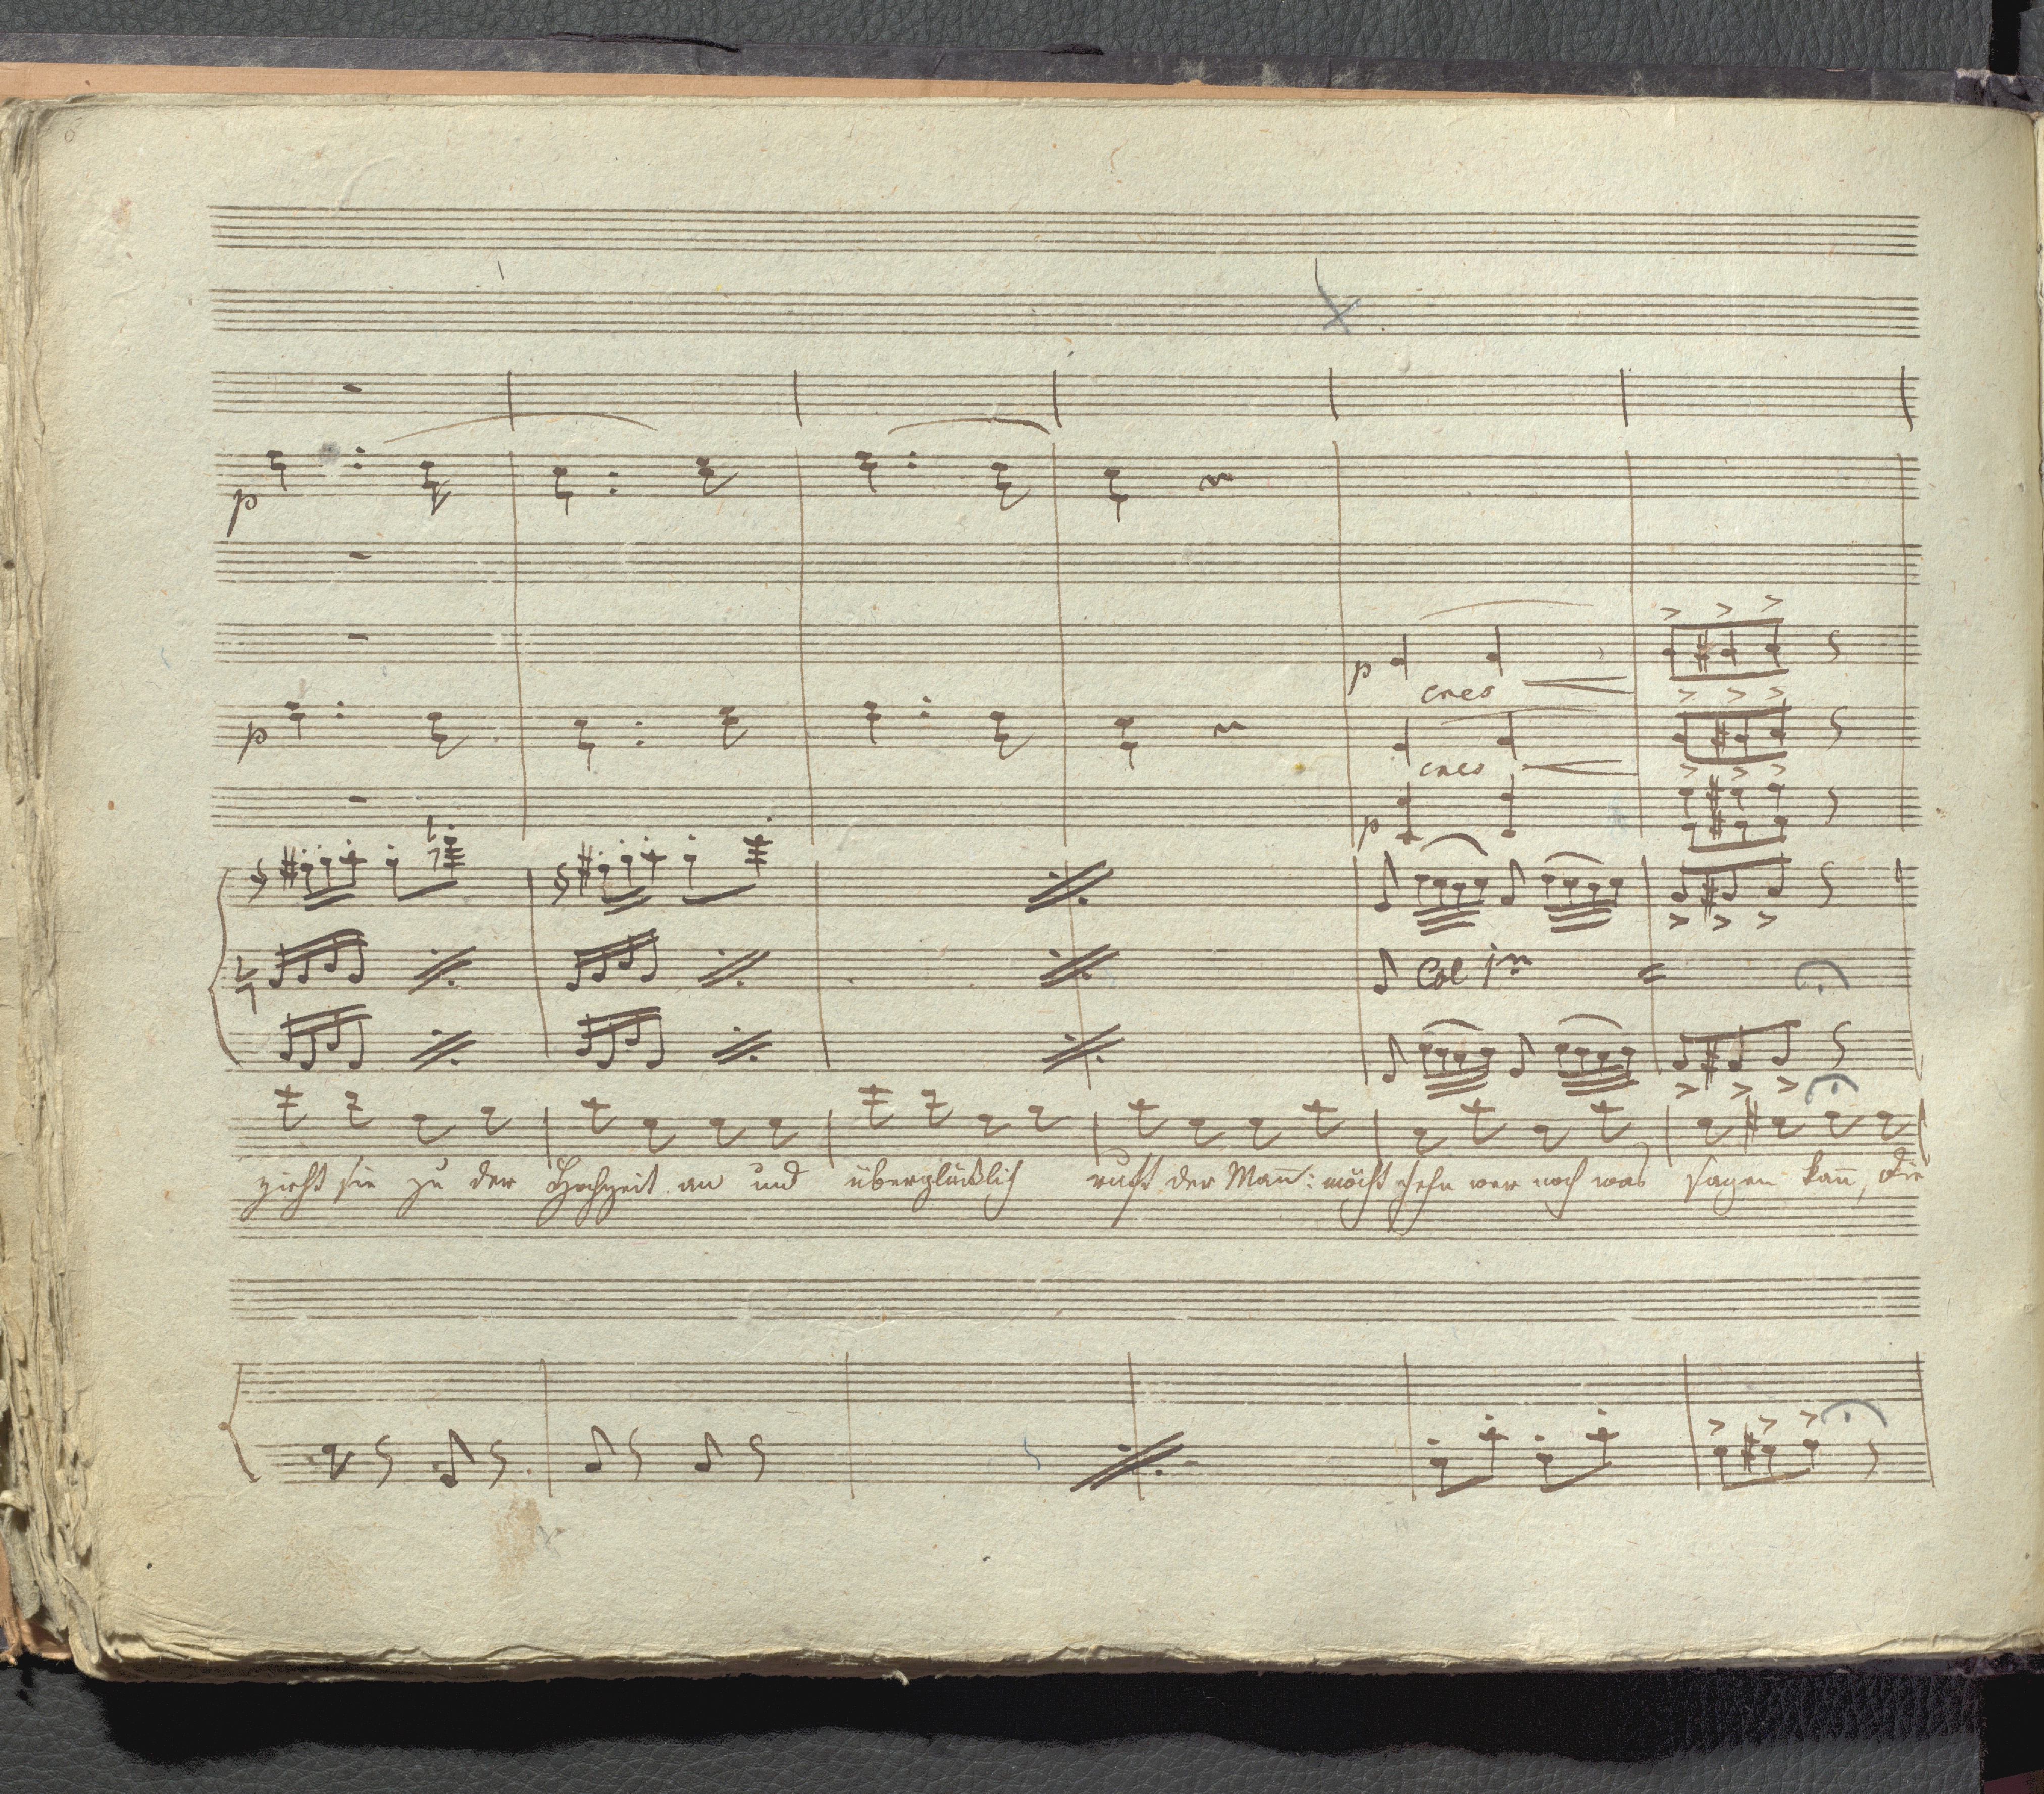 p
p
p
cres
cres
p
Col 1mo
zieht sie zu der Hochzeit an und überglücklich ruft der Mañ: möcht sehn wer noch was sagen kañ, die